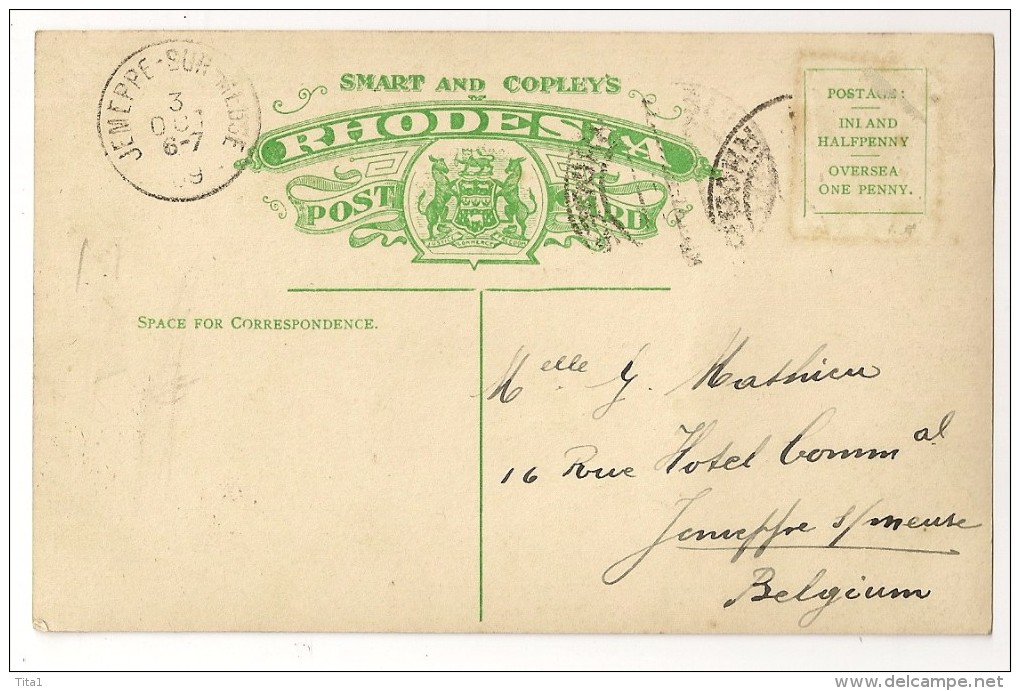 JEMEPPE-SUR-MEUSE
3
6-7
09
SMART AND COPLEY'S
RHODESIA
POST CARD
JUSTICE COMMERCE FREEDOM
POSTAGE:
INLAND
HALFPENNY
OVERSEA
ONE PENNY.
SPACE FOR CORRESPONDENCE.
Melle Y. Mathieu
16 Rue Hotel Commal
Jemeppe s/meuse
Belgium
Tita1
www.delcampe.net